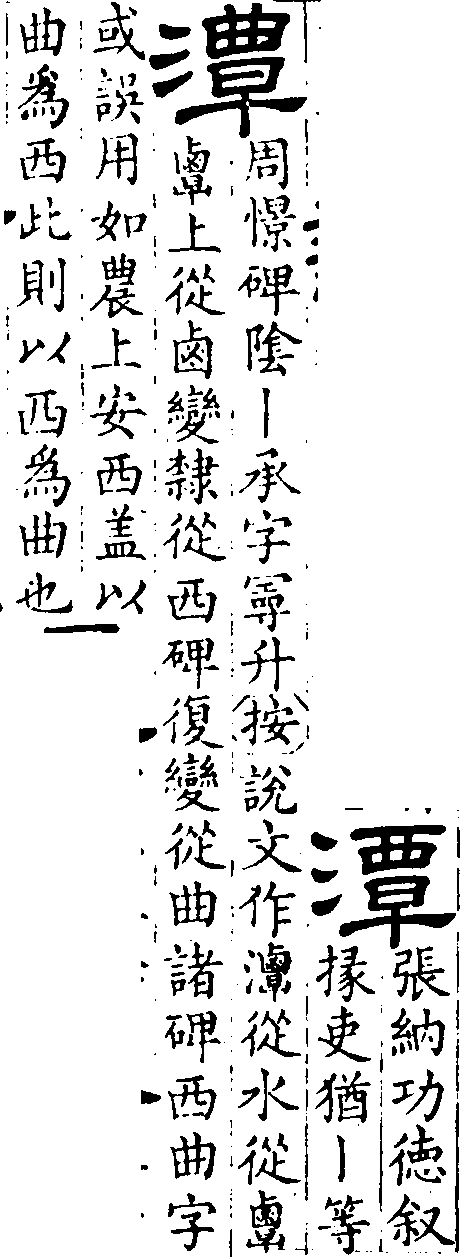 潭
張納功徳叙
掾吏猶丨等
潭
周憬碑陰丨承字䨷升按說文作𤅊從水從𪉷
𪉷上從鹵變隸從西碑復變從曲諸碑西曲字
或誤用如農上安西盖以
曲爲西此則以西爲曲也